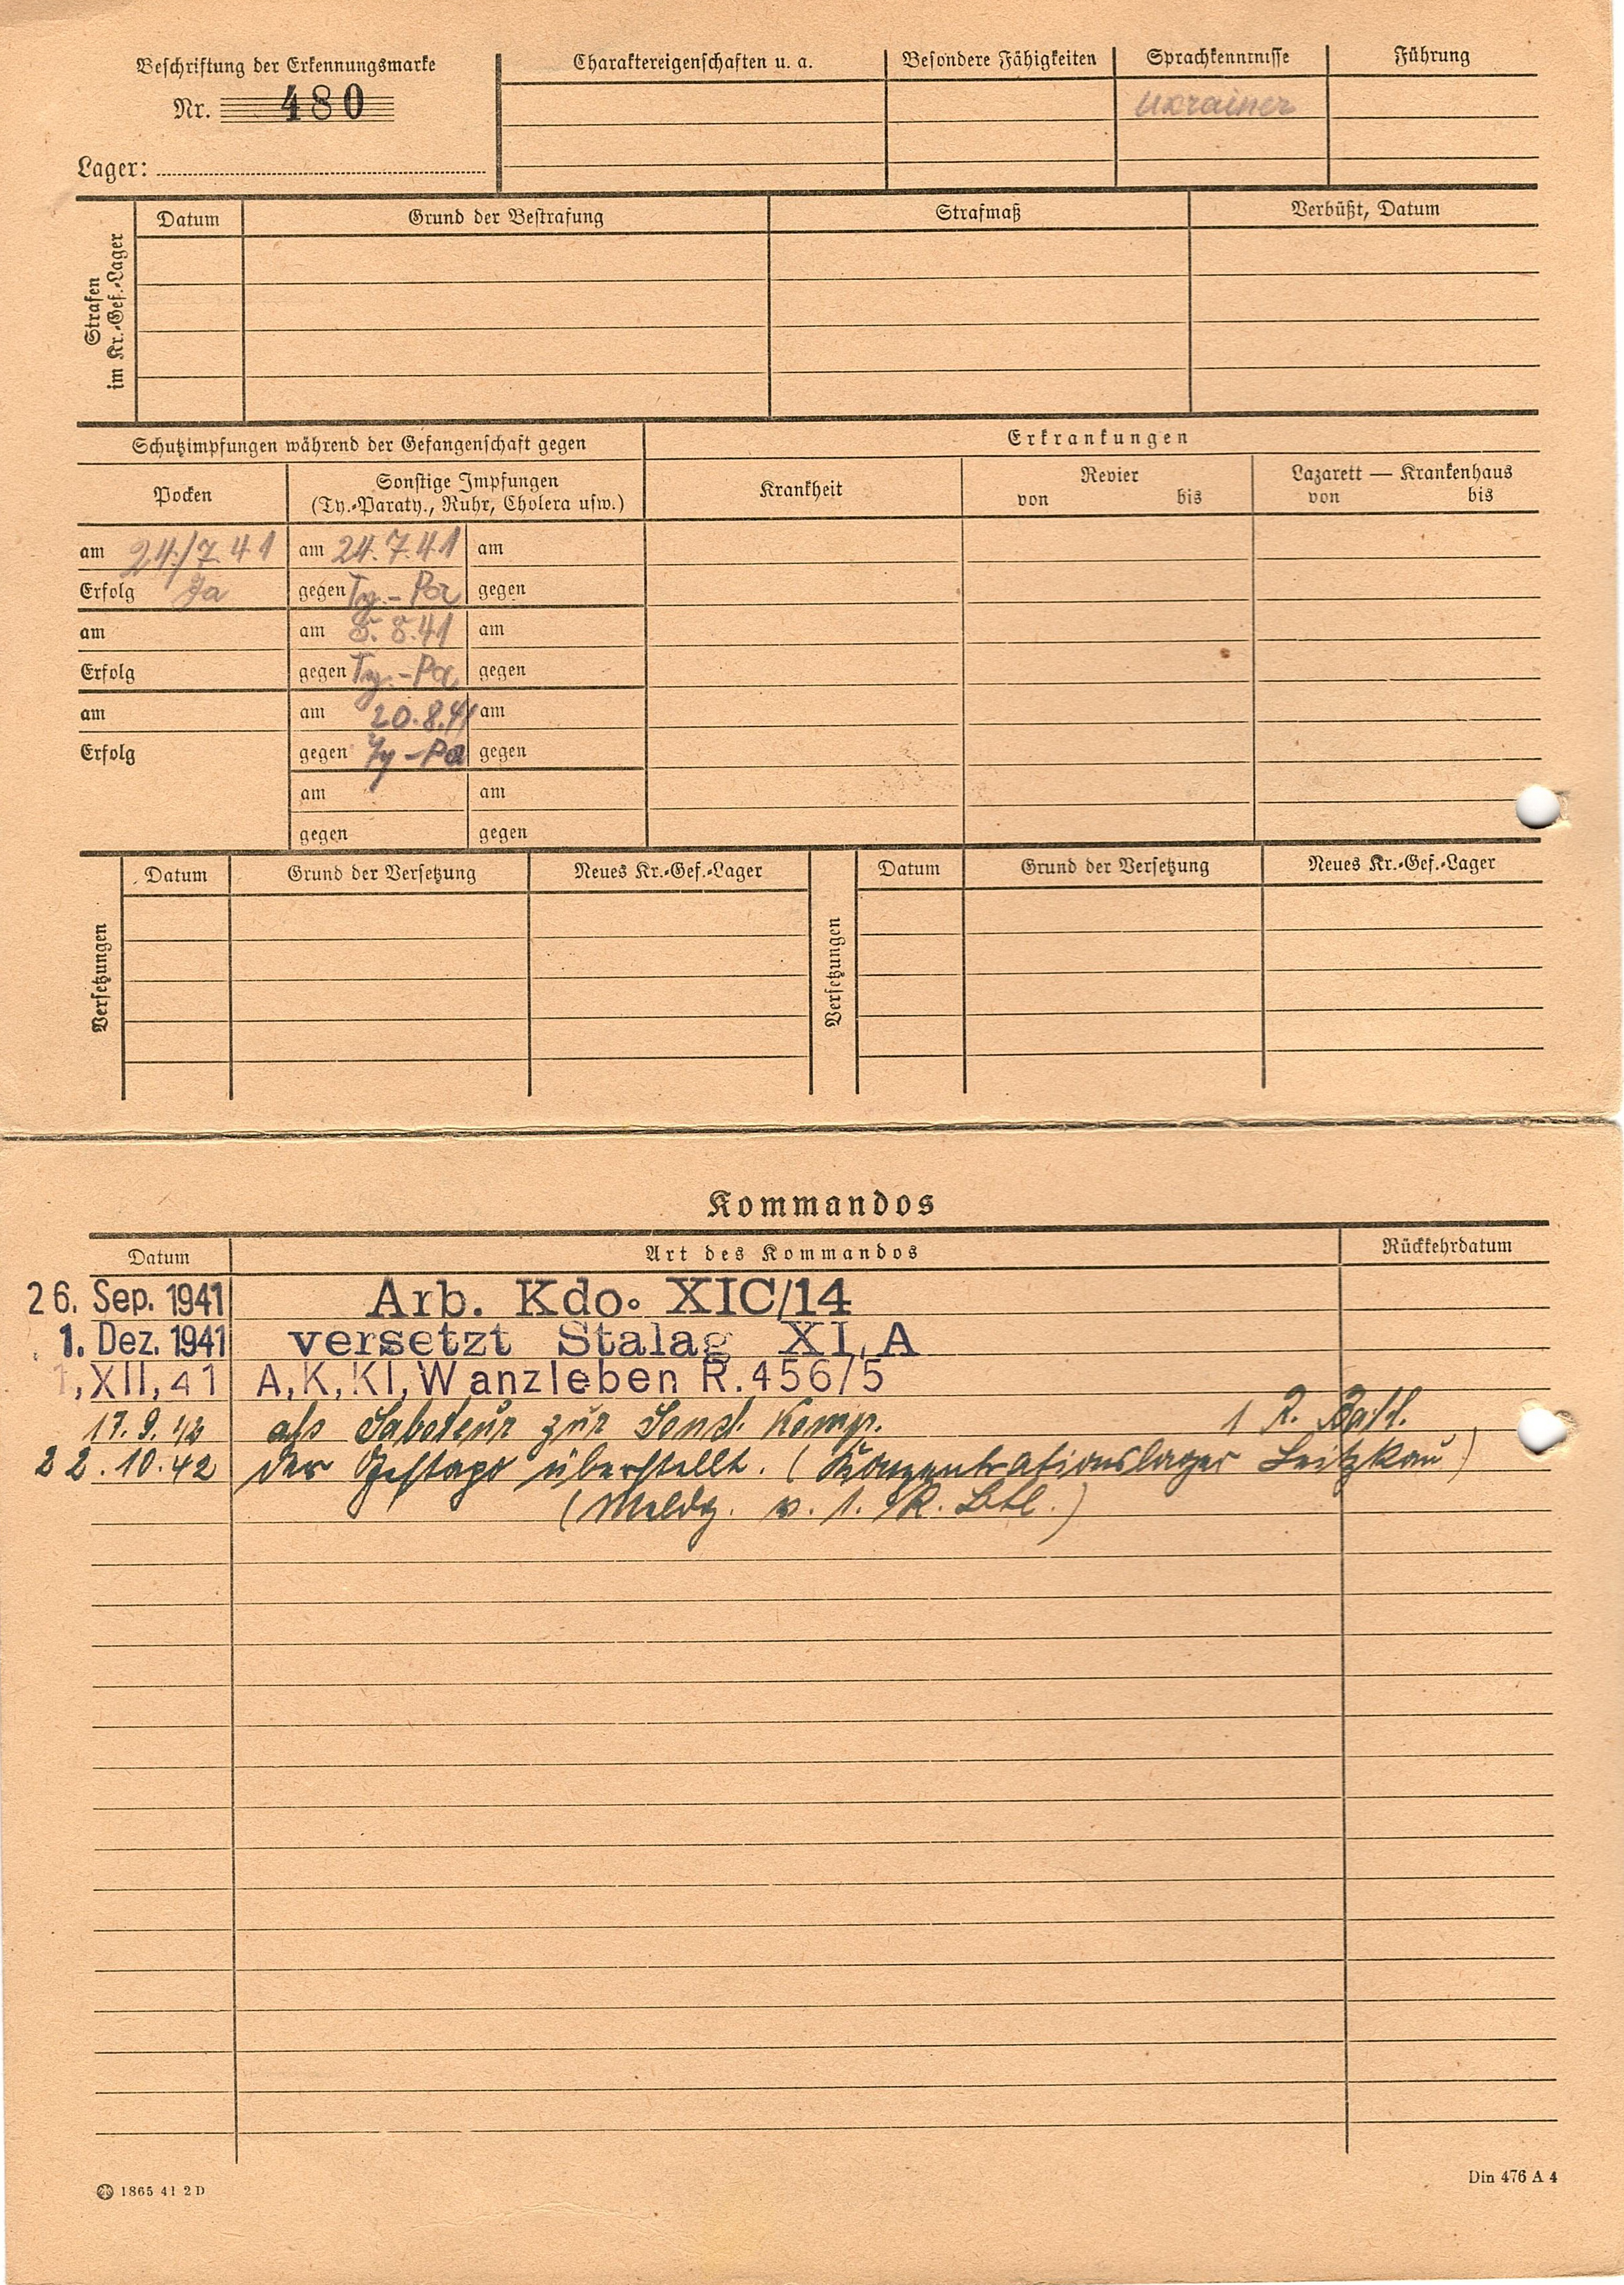 Beschriftung der Erkennungsmarke
Nr. 480
Lager:
Charaktereigenschaften u. a.
Besondere Fähigkeiten
Sprachkenntnisse
Ukrainer
Führung
Strafen
im Kr.-Gef.-Lager
Datum
Grund der Bestrafung
Strafmaß
Verbüßt, Datum
Schutzimpfungen während der Gefangenschaft gegen
Erkrankungen
Pocken
Sonstige Impfungen
(Ty.-Paraty., Ruhr, Cholera usw.)
Krankheit
Revier
von bis
Lazarett — Krankenhaus
von bis
am 24./7.41 am 24.7.41 am
Erfolg Ja gegen Ty.-Pa gegen
am am 5.8.41 am
Erfolg gegen Ty.-Pa. gegen
am am 20.8.41 am
Erfolg gegen Ty-Pa gegen
am am
gegen gegen
Versetzungen
Datum
Grund der Versetzung
Neues Kr.-Gef.-Lager
Versetzungen
Datum
Grund der Versetzung
Neues Kr.-Gef.-Lager
Kommandos
Datum Art des Kommandos Rückkehrdatum
26. Sep. 1941 Arb. Kdo. XIC/14
1. Dez. 1941 versetzt Stalag XI, A
1,XII,41 A,K,Kl,Wanzleben R.456/5
17.9.42 als Saboteur zur Komp. 1 R. Batl.
22.10.42 der Gestapo überstellt. (Konzentrationslager Leitzkau)
(Meldg. v. 1. R. Btl.)
1865 41 2 D
Din 476 A 4